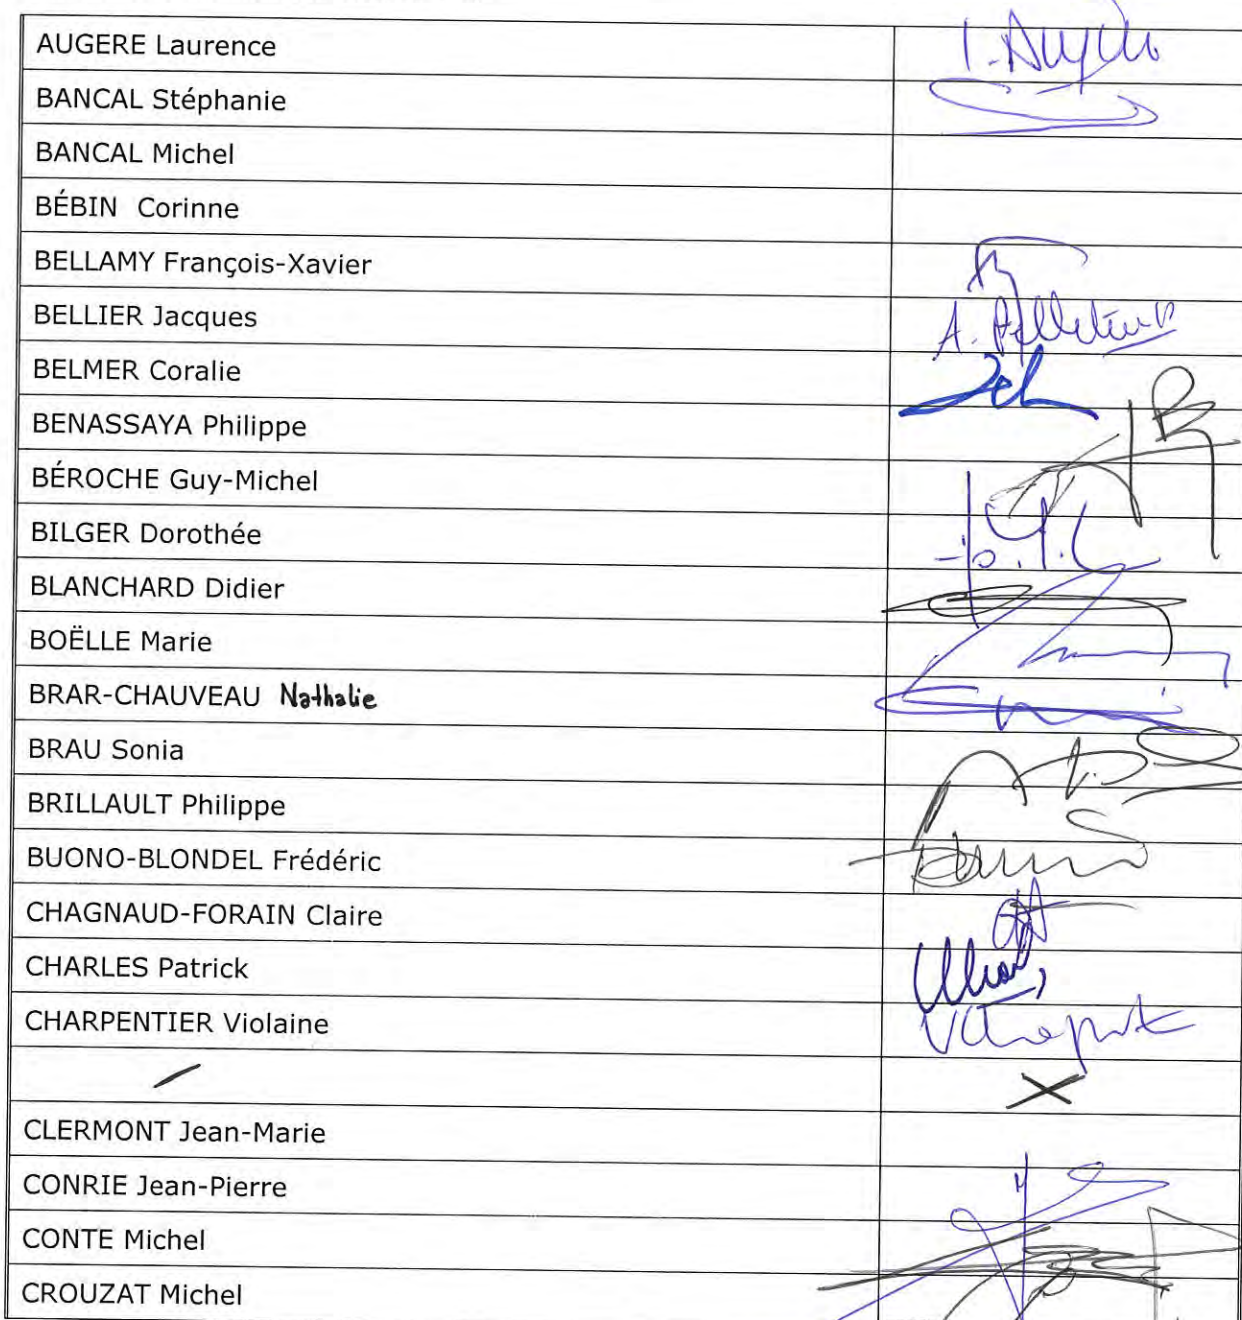 AUGERE Laurence
BANCAL Stéphanie
BANCAL Michel
BÉBIN Corinne
BELLAMY François-Xavier
BELLIER Jacques
BELMER Coralie
BENASSAYA Philippe
BÉROCHE Guy-Michel
BILGER Dorothée
BLANCHARD Didier
BOËLLE Marie
BRAR-CHAUVEAU Nathalie
BRAU Sonia
BRILLAULT Philippe
BUONO-BLONDEL Frédéric
CHAGNAUD-FORAIN Claire
CHARLES Patrick
CHARPENTIER Violaine
CLERMONT Jean-Marie
CONRIE Jean-Pierre
CONTE Michel
CROUZAT Michel